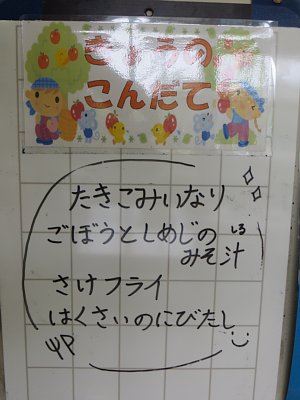 きょうの
こんだて
たきこみいなり
ごぼうとしめじの
みそ汁
しる
さけフライ
はくさいのにびたし